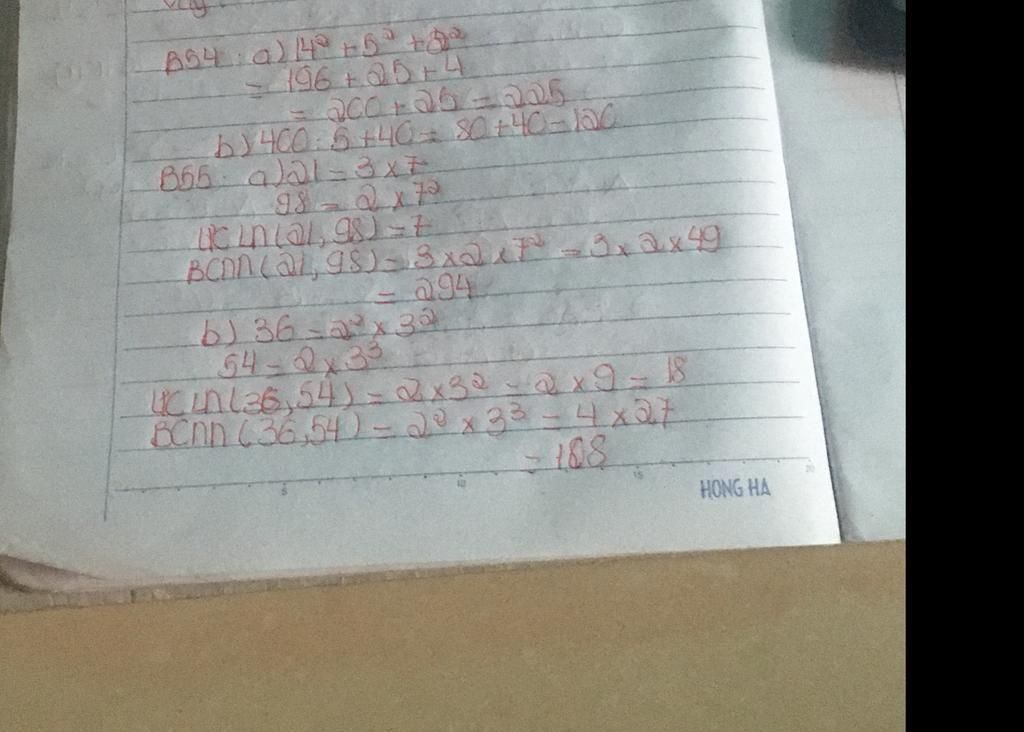 B54: a) 14² + 5² + 2²
= 196 + 25 + 4
= 200 + 25 = 225
b) 400 : 5 + 40 = 80 + 40 = 120
B55: a) 21 = 3 x 7
98 = 2 x 7²
ƯCLN(21, 98) = 7
BCNN(21, 98) = 3 x 2 x 7² = 3 x 2 x 49
= 294
b) 36 = 2² x 3²
54 = 2 x 3³
ƯCLN(36, 54) = 2 x 3² = 2 x 9 = 18
BCNN(36, 54) = 2² x 3³ = 4 x 27
= 108
5 10 15 20
HONG HA